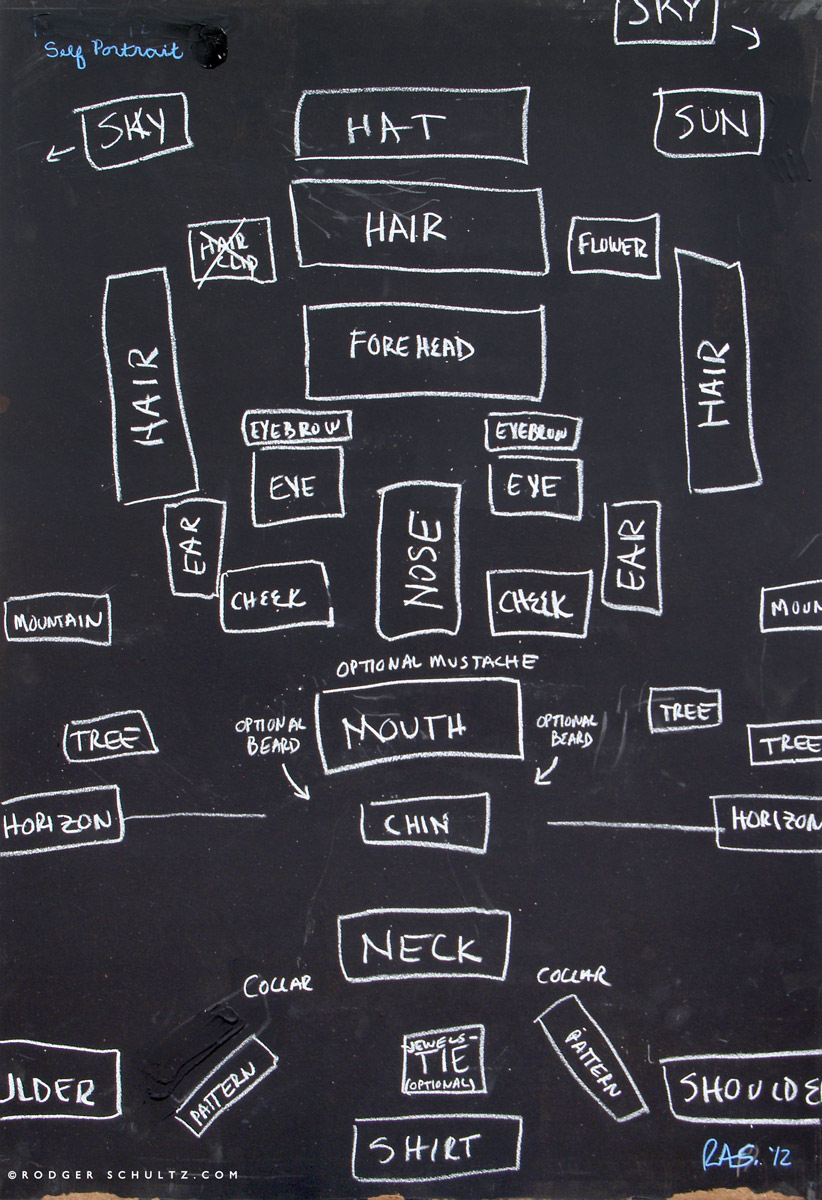 SKY
Self Portrait
SKY
HAT
SUN
HAIR
HAIR
CLIP
FLOWER
HAIR
HAIR
FOREHEAD
EYEBROW
EYEBROW
EYE
EYE
EAR
NOSE
EAR
CHEEK
CHEEK
MOUNTAIN
MOUN
OPTIONAL MUSTACHE
TREE
OPTIONAL
BEARD
MOUTH
OPTIONAL
BEARD
TREE
TREE
HORIZON
CHIN
HORIZON
NECK
COLLAR
COLLAR
ULDER
PATTERN
JEWELS-
TIE
(OPTIONAL)
PATTERN
SHOULDE
SHIRT
RAS. '12
© RODGER SCHULTZ.COM